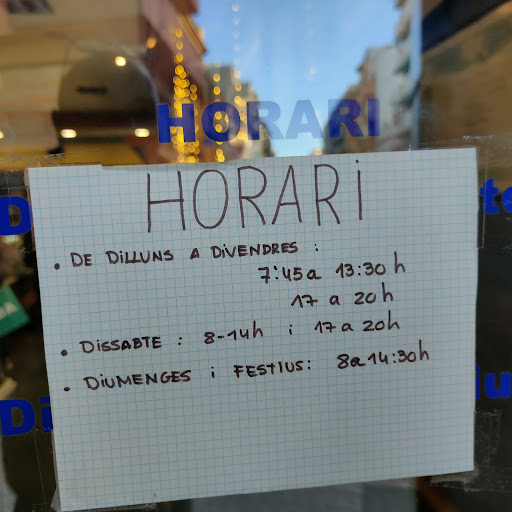 HORARI
HORARI
• DE DILLUNS A DIVENDRES :
7:45 a 13:30 h
17 a 20h
• DISSABTE : 8-14h i 17 a 20h
• DIUMENGES i FESTIUS: 8 a 14:30h